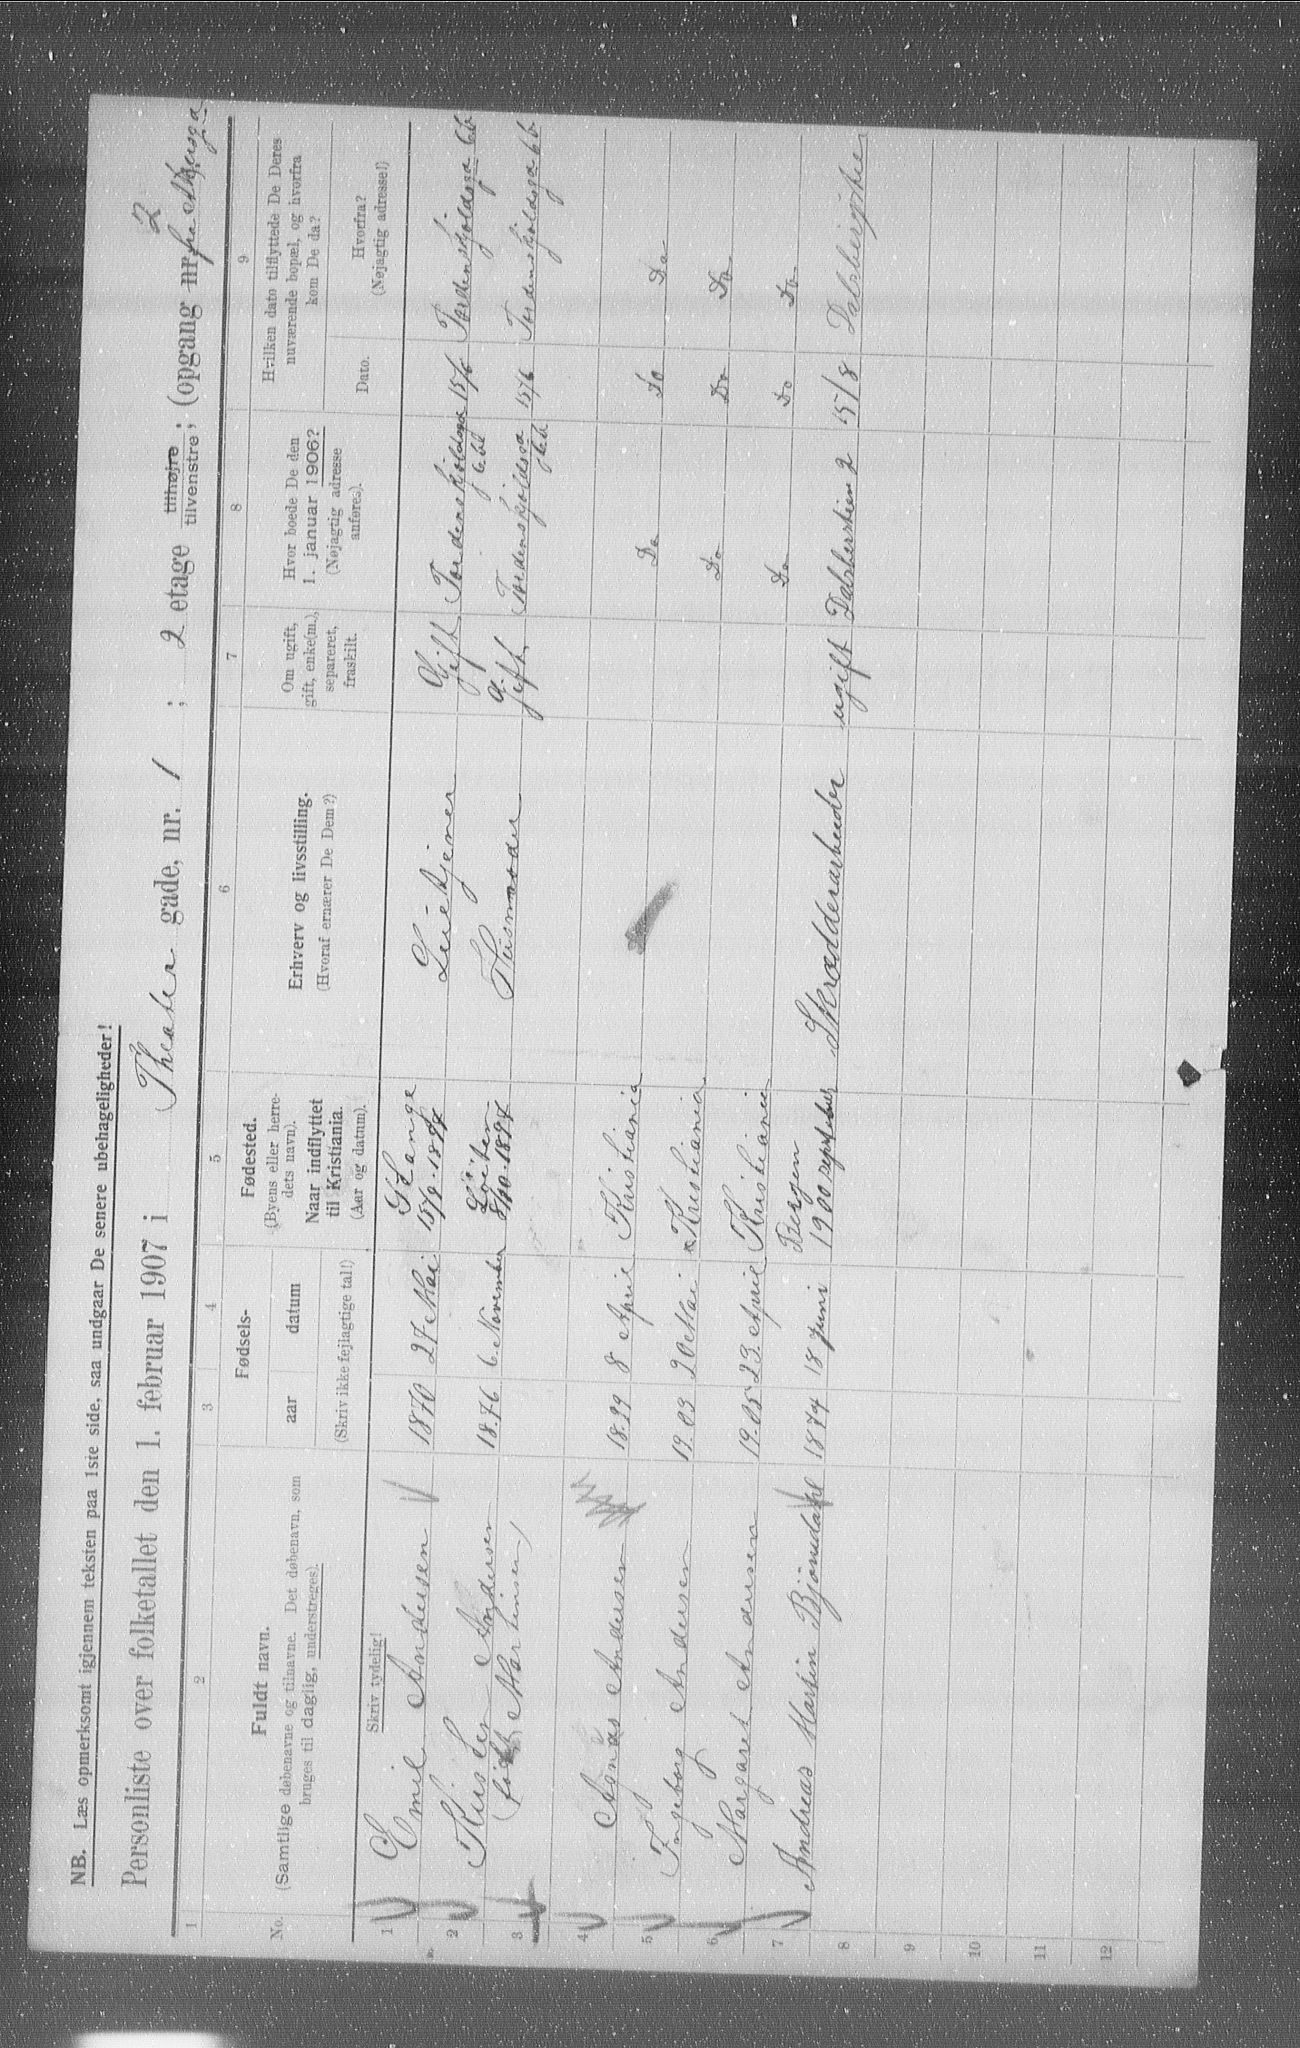 NB. Læs opmerksomt igjennem teksten paa 1ste side, saa undgaar De senere ubehageligheder!
Personliste over folketallet den 1. februar 1907 i Theater gade, nr. 1 ; 2 etage tilhøjre tilvenstre; (opgang nr. 2 fra Akersga
1 2 3 4 5 6 7 8 9
No.
Fuldt navn.
(Samtlige døbenavne og tilnavne. Det døbenavn, som
bruges til daglig, understreges).
Skriv tydelig!
Fødsels-
aar datum
(Skriv ikke fejlagtige tal!)
Fødested.
(Byens eller herre-
dets navn).
Naar indflyttet
til Kristiania.
(Aar og datum).
Erhverv og livsstilling.
(Hvoraf ernærer De Dem?)
Om ugift,
gift, enke(m.),
separeret,
fraskilt.
Hvor boede De den
1. januar 1906?
(Nøjagtig adresse
anføres).
Hvilken dato tilflyttede De Deres
nuværende bopæl, og hvorfra
kom De da?
Dato.
Hvorfra?
(Nøjagtig adresse!)
1 Emil Andersen 1870 27 Mai Stange Gift Tordenskjoldsga 6bb 15/6 Tordenskjoldsga 6b
2 Kirsten Andersen 1876 6 November Løiten Husmoder Gift Tordenskjoldsga 6bb 15/6 Tordenskjoldsga 6b
3 (født Martinsen)
4 Agnas Andersen 1899 8 April Kristiania Do Do Do
5 Ingeborg Andersen 1903 20 Mai Kristiania Do Do Do
6 Margaret Andersen 1905 23 April Kristiania Do Do Do
7 Andreas Martin Bjönidahl 1874 18 juni Bergen 1900 september Skrædderarbeider ugift Dalsbersstien 2 15/8 Dalsbergstien
8
9
10
11
12